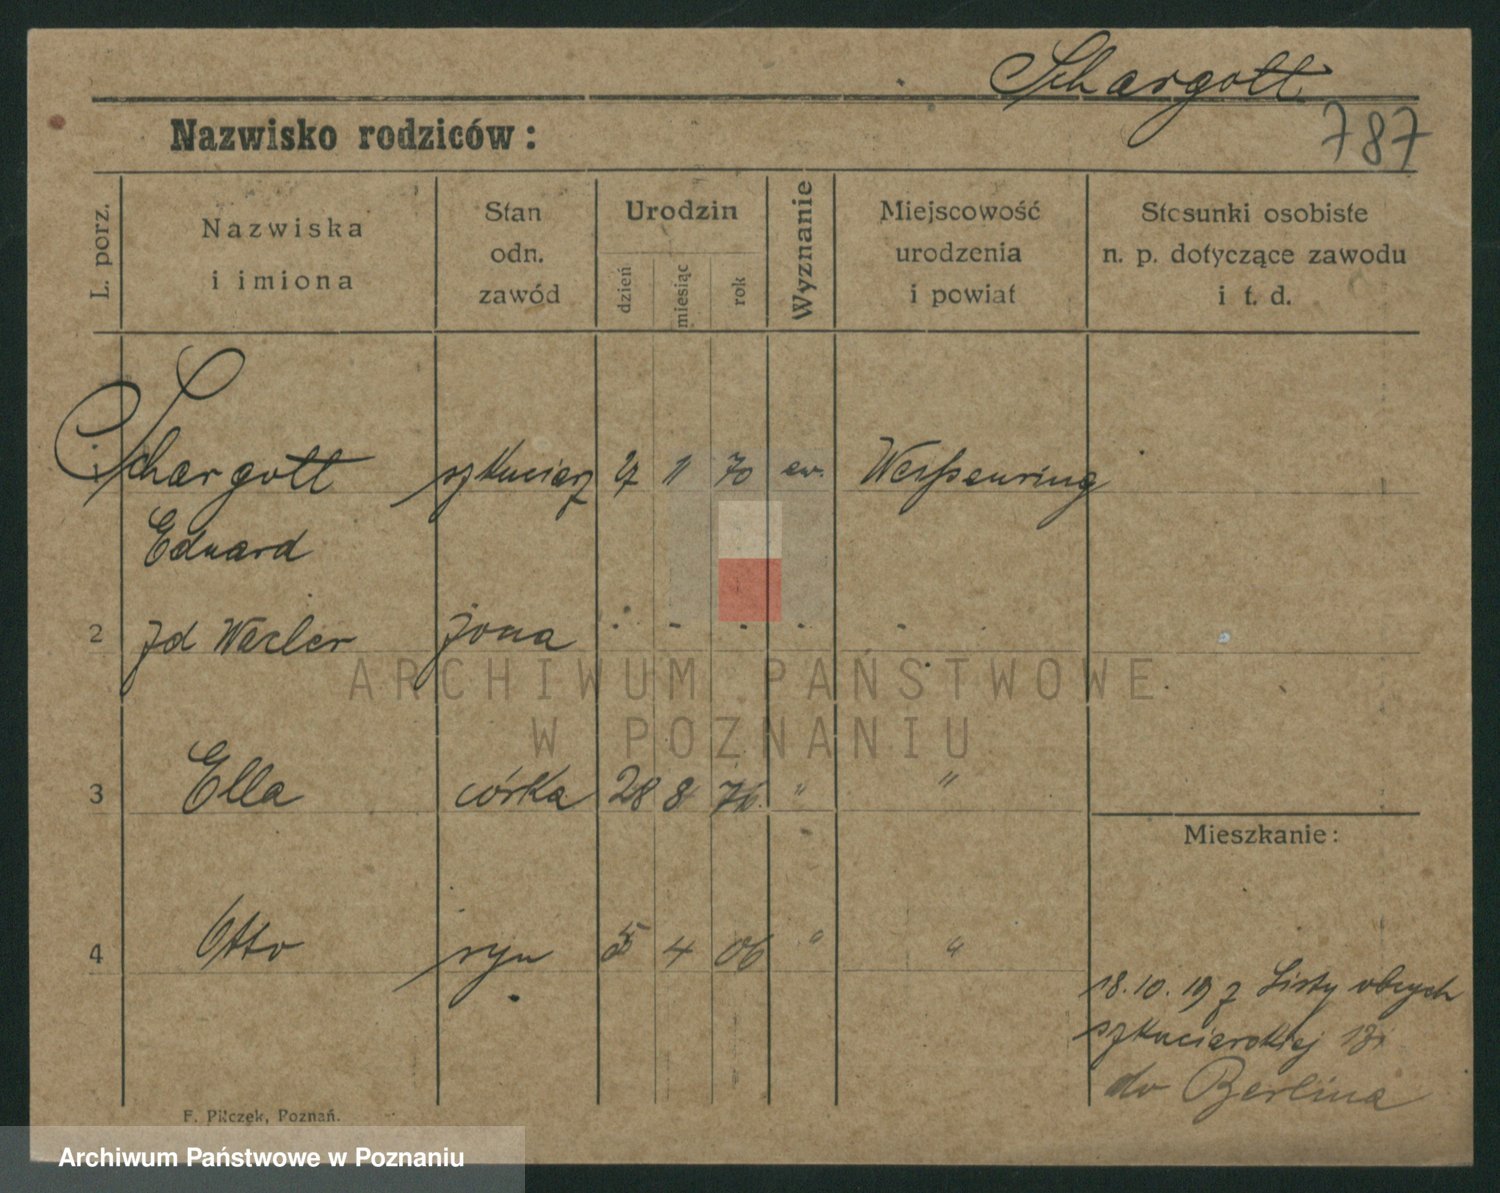 Schargott
787
Nazwisko rodziców:
L. porz.
Nazwiska
i imiona
Stan
odn.
zawód
Urodzin
dzień
miesiąc
rok
Wyznanie
Miejscowość
urodzenia
i powiat
Stosunki osobiste
n. p. dotyczące zawodu
i t. d.
1 Schargott szkuciarz 27 11 70 ew.
Eduard
2 żona
3 Ella córka 28 8 " "
4 Otto syn 5 4 06 " "
Mieszkanie:
18.10.19 z Listy obcych
szkuciarskiej
do Berlina
F. Pilczek, Poznań.
ARCHIWUM PAŃSTWOWE
W POZNANIU
Archiwum Państwowe w Poznaniu